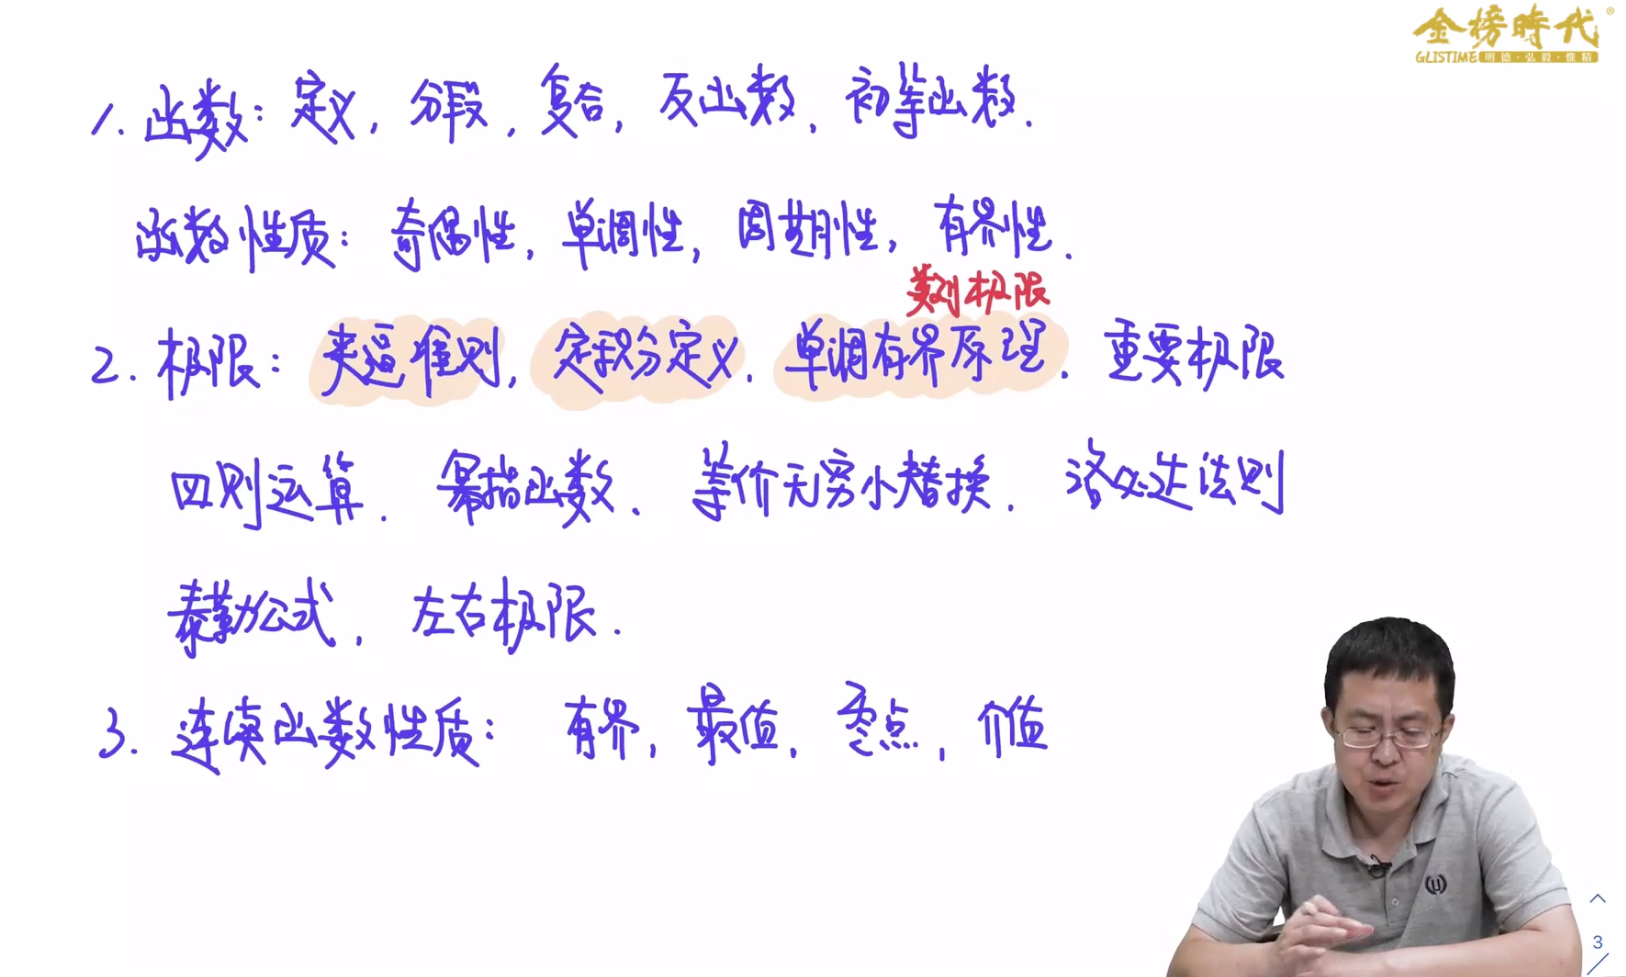 金榜時代
GLISTIME 明德·弘毅·惟精
1. 函数：定义，分段，复合，反函数、初等函数.
函数性质：奇偶性，单调性，周期性，有界性.
数列极限
2. 极限：夹逼准则，定积分定义、单调有界原理、重要极限
四则运算、幂指函数、等价无穷小替换、洛必达法则
泰勒公式，左右极限.
3. 连续函数性质：有界，最值，零点，介值
3